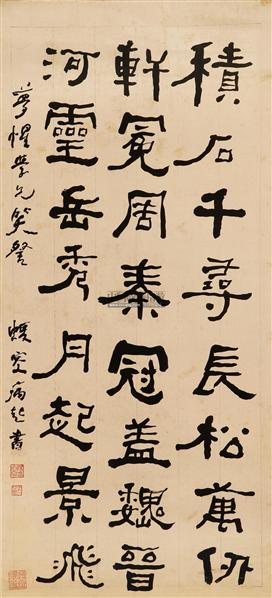 積石千尋長松萬仞
軒冕周秦冠盖魏晉
河靈岳秀月起景飛
夢惺學兄笑詧
蝯窔病起書